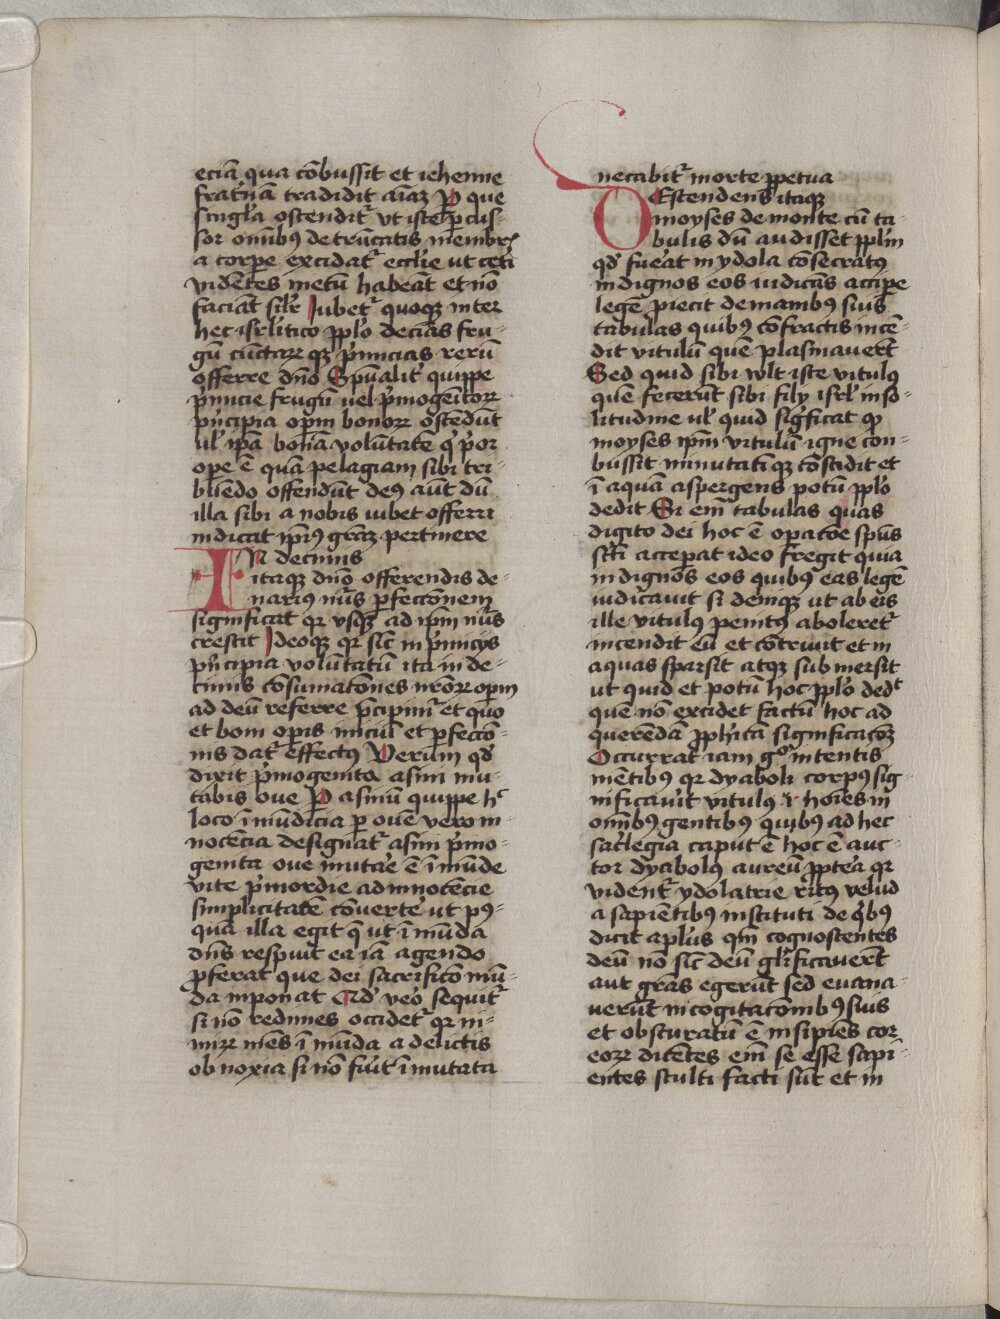 eciā qua cōbussit et iehenne
frat'nā tradidit aīaȝ Per que
singl'a ostendit' ut iste percus-
sor om̄ibꝰ detrūcatis membr'
a corpe excidat' eccl'ie ut cet'i
vidētes metū habeāt et nō
faciāt sil'r Jubet' quoqȝ inter
hec isrl'itico ppl'o decīas fru-
gū cūctarꝝ qȝ p'micias rerū
offerre dn̄o Sp̄ualit' quippe
p'micie frugū uel p'mogēitorꝝ
p'ncipia opm̄ bonorꝝ ostēdūt
ul' ip̄ā bonā volūtatē q' p'or
ope ē quā pelagiani sibi tri-
buēdo offendūt deꝰ aūt dū
illa sibi a nobis iubet offerri
indicat ip̄iꝰ grāȝ pertinere
In decimis
itaqȝ dn̄o offerendis de-
nariꝰ nūs perfectōnem
significat qr usqȝ ad ip̄m nūs
crescit Ideoqȝ qr sic̄ in p'micijs
p'ncipia volūtatū ita in de-
cimis cōsumatōnes nr̄orꝝ opm̄
ad deū referre p'cipim' et quo
et boni opis iniciū et perfectō-
nis dat' effectꝰ Verum qd'
dixit p'mogenita asini mu-
tabis oue Per asinū quippe hͨ
loco īmūdicia per oue vero in-
nocēcia designat' asini p'mo-
genita oue mutare ē īmūde
vite p'mordia ad īnocēcie
simplicitatē cōverte' ut pꝰ-
quā illa egit q̄ ut īmūda
dn̄s respuit ea iā agendo
proferat que dei sacrificio mū-
da inponat Qd' vero sequit'
si nō redimes occidet' qr ni-
mirꝝ mēs īmūda a delictis
obnoxia si nō fuit īmutata
necabit' morte ppetua
Descendens itaqȝ
moyses de monte cū ta-
bulis dū audisset ppl'm
qd' fuerat in ydola cōsecratꝰ
indignos eos iudicās accipe
legē piecit de manibꝰ suis
tabulas quibꝰ cōfractis incē-
dit vitulū quē plasmaverūt
Sed quid sibi vult iste vitulꝰ
quē fecerūt sibi filij isrl' in so-
litudine ul' quid sig'ficat qd
moyses ip̄m vitulū igne con-
bussit minutatīqȝ cōscidit et
ī aquā aspergens potū ppl'o
dedit Si em̄ tabulas quas
digito dei hoc ē opacōe sp̄us
sc̄ti acceperat ideo fregit quia
indignos eos quibꝰ eas legē
iudicavit si deniqȝ ut ab eis
ille vitulꝰ penitꝰ aboleret'
incendit eū et cōtrivit et in
aquas sparsit atqȝ submersit
ut quid et potū hoc ppl'o dedͭ
quē nō excidet factū hoc ad
querēdā pph'icā significacōȝ
Occurrat iam gͦ intentis
mētibꝰ qr dyaboli corpꝰ sig-
nificavit vitulꝰ i hoīes in
om̄ibꝰ gentibꝰ quibꝰ ad hec
sac'legia caput ē hoc ē auc-
tor dyabolꝰ aureū ppt'ea qr
vident' ydolatrie ritꝰ velud
a sapiētibꝰ instituti de q'bꝰ
dicit apl'us qm̄ cognoscentes
deū nō sic̄ deū gl'ificaverūt
aut grās egerūt sed evana-
verūt in cogitacōnibꝰ suis
et obscuratū ē insipiēs cor
eorꝝ dicētes em̄ se esse sapi-
entes stulti facti sūt et in